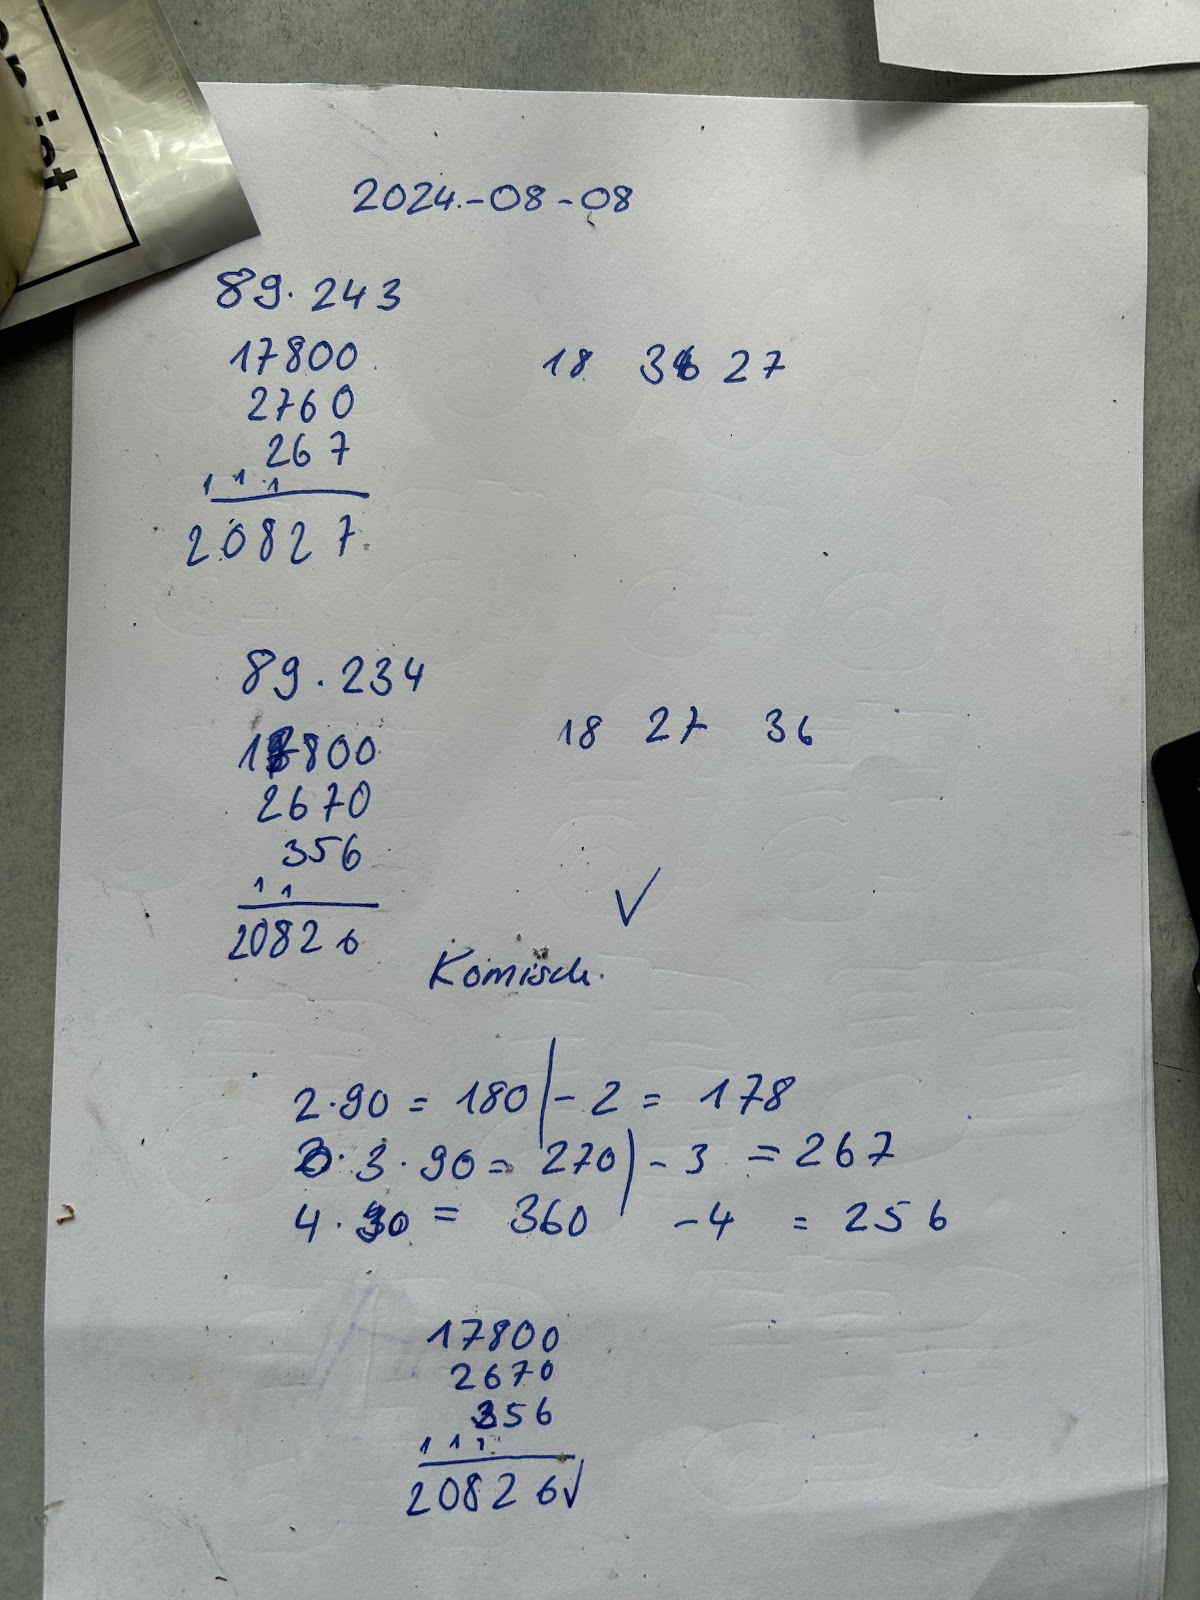 2024-08-08
89·243
17800
18 36 27
2760
267
1 1 1
20827
89·234
17800
18 27 36
2670
356
1 1
20826
✓
Komisch.
2·90 = 180 | - 2 = 178
3·90 = 270 | - 3 = 267
4·90 = 360 - 4 = 256
17800
2670
356
1 1 1
20826 ✓